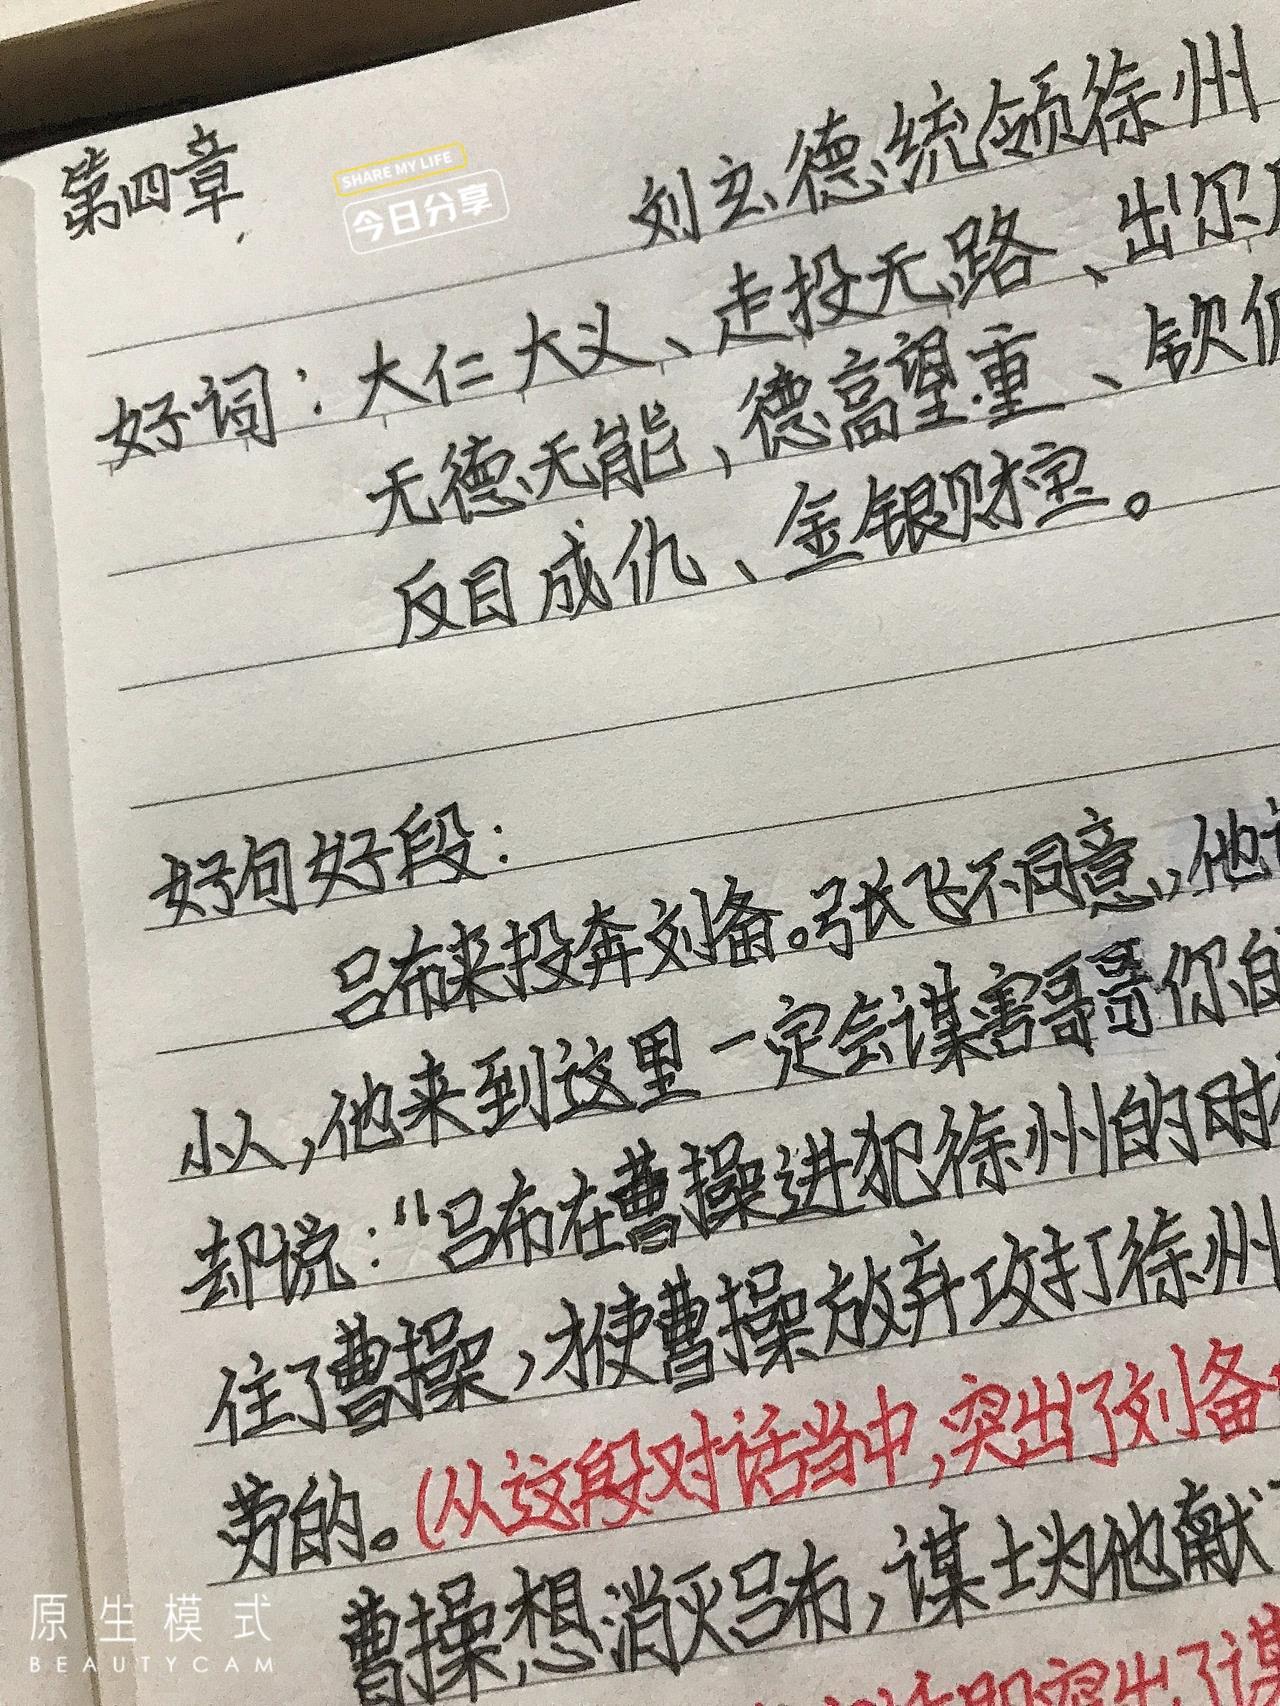 第四章
SHARE MY LIFE
今日分享
刘玄德统领徐州
好词：大仁大义、走投无路、出尔
无德无能，德高望重、钦佩
反目成仇、金银财宝。
好句好段：
吕布来投奔刘备。张飞不同意，他
小人，他来到这里一定会谋害哥哥你的
却说：“吕布在曹操进犯徐州的时
住了曹操，才使曹操放弃攻打徐州
劳的。(从这段对话当中，突出了刘备
曹操想消灭吕布，谋士为他献
突出了谋
原生模式
BEAUTYCAM